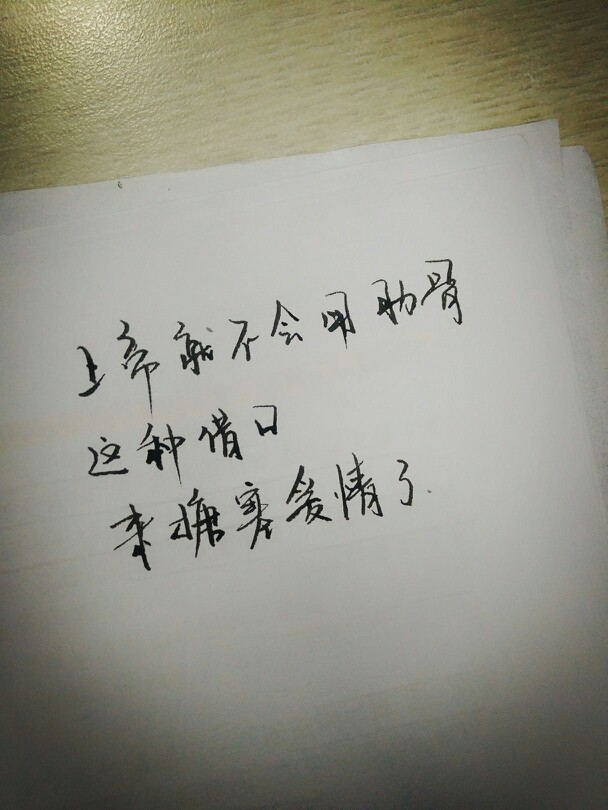 上帝就不会用肋骨
这种借口
来搪塞爱情了.